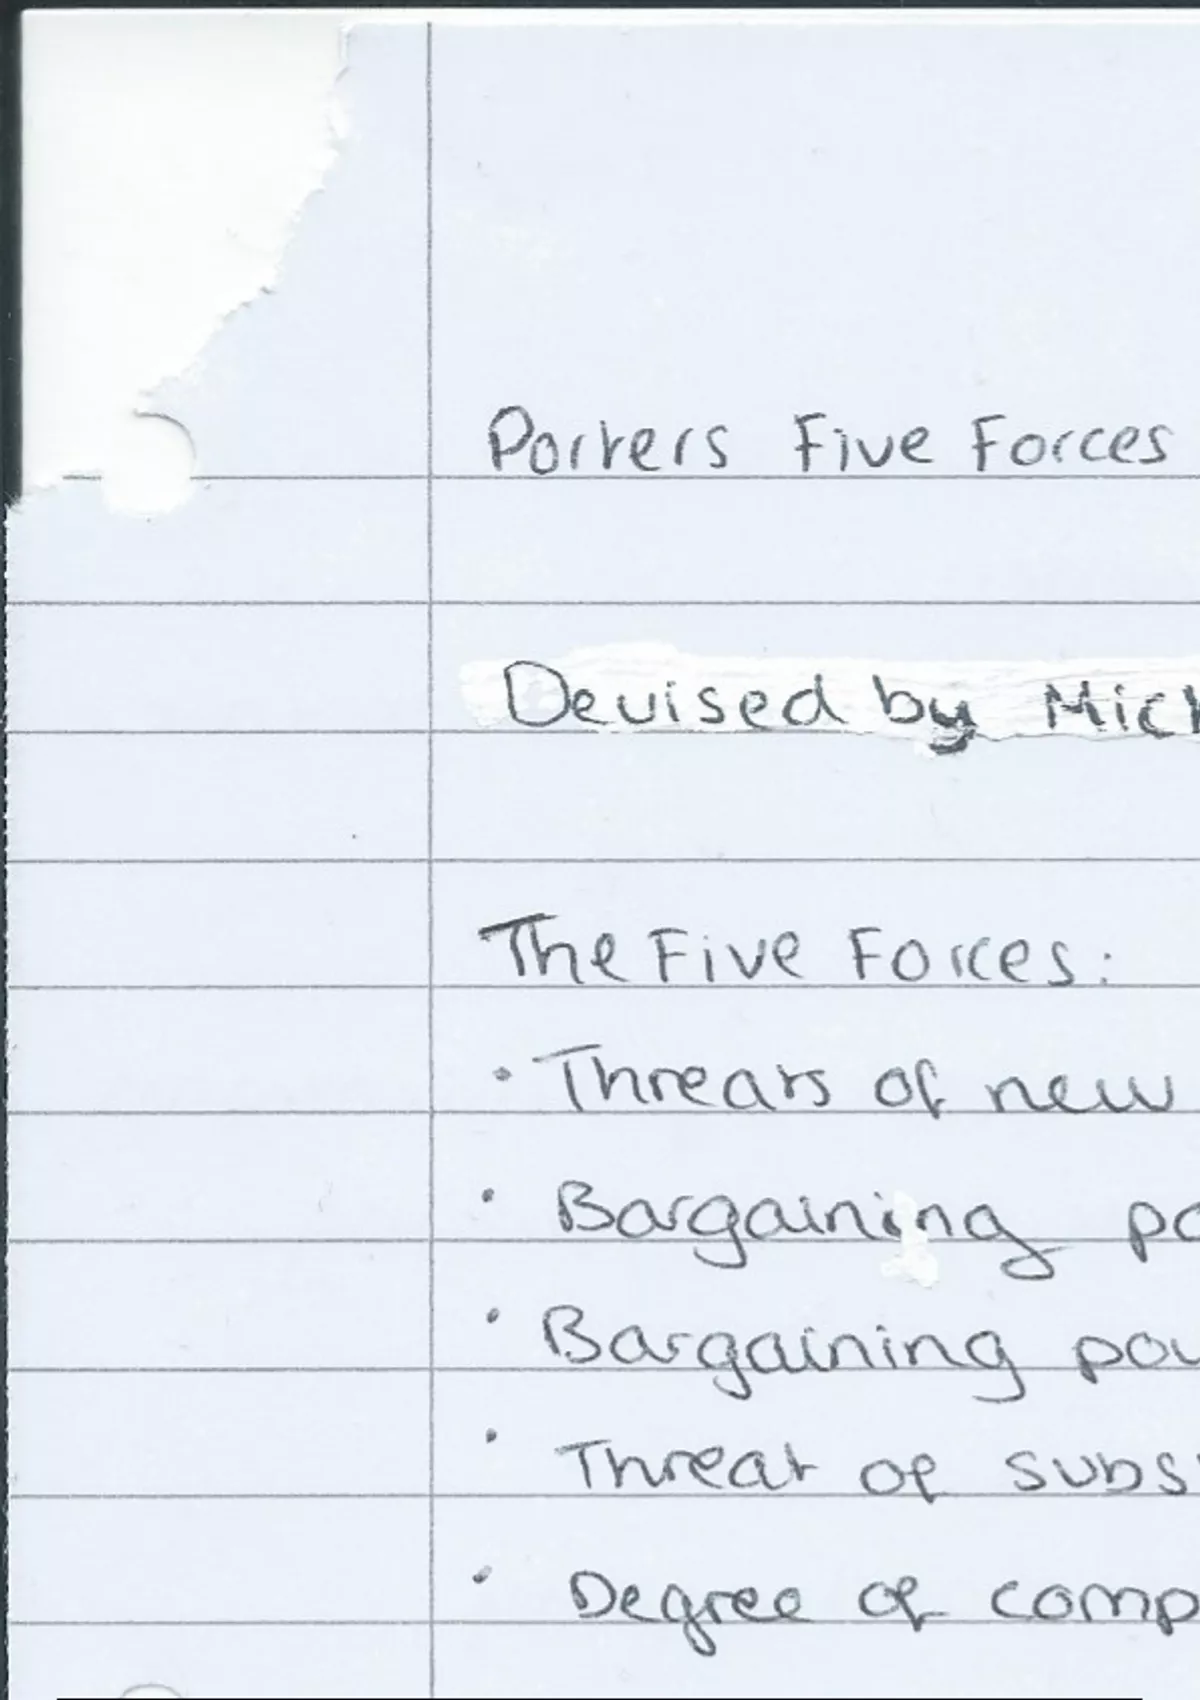 Porters Five Forces
Devised by Mich
The Five Forces:
• Threats of new
• Bargaining po
• Bargaining pow
• Threat of subs
• Degree of comp